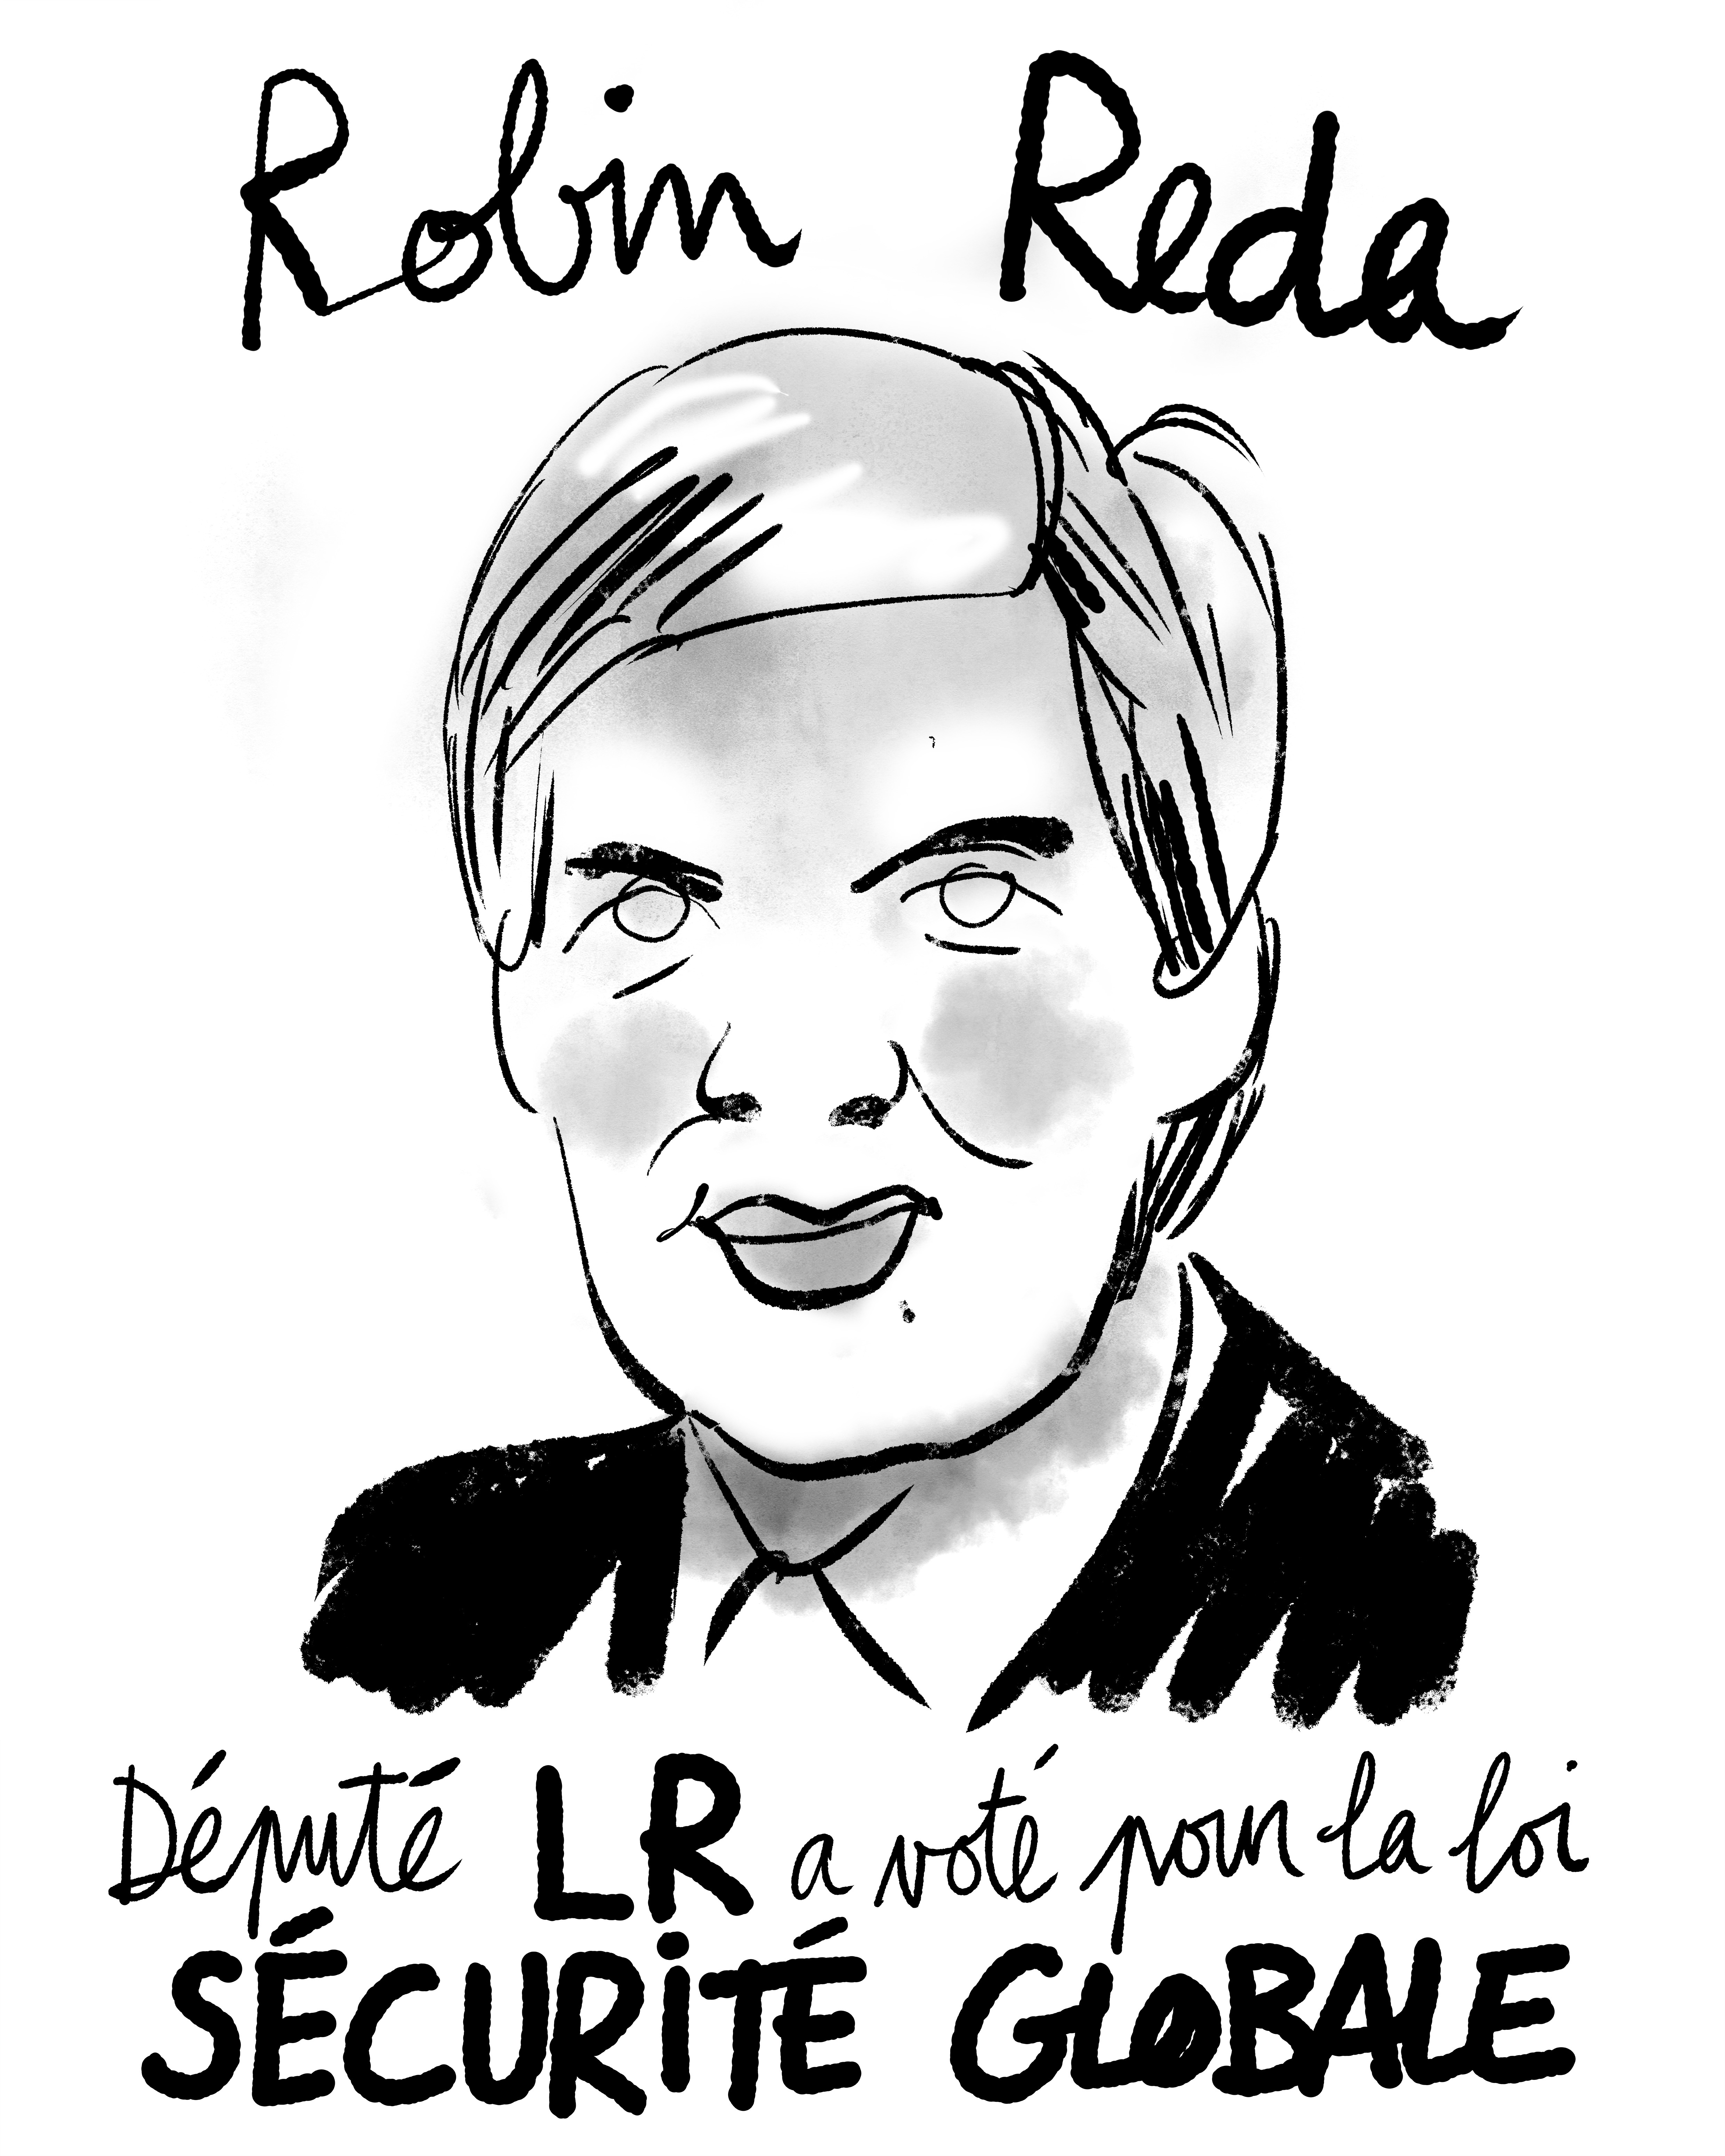 Robin Reda
Député LR a voté pour la loi
SÉCURiTÉ GLOBALE